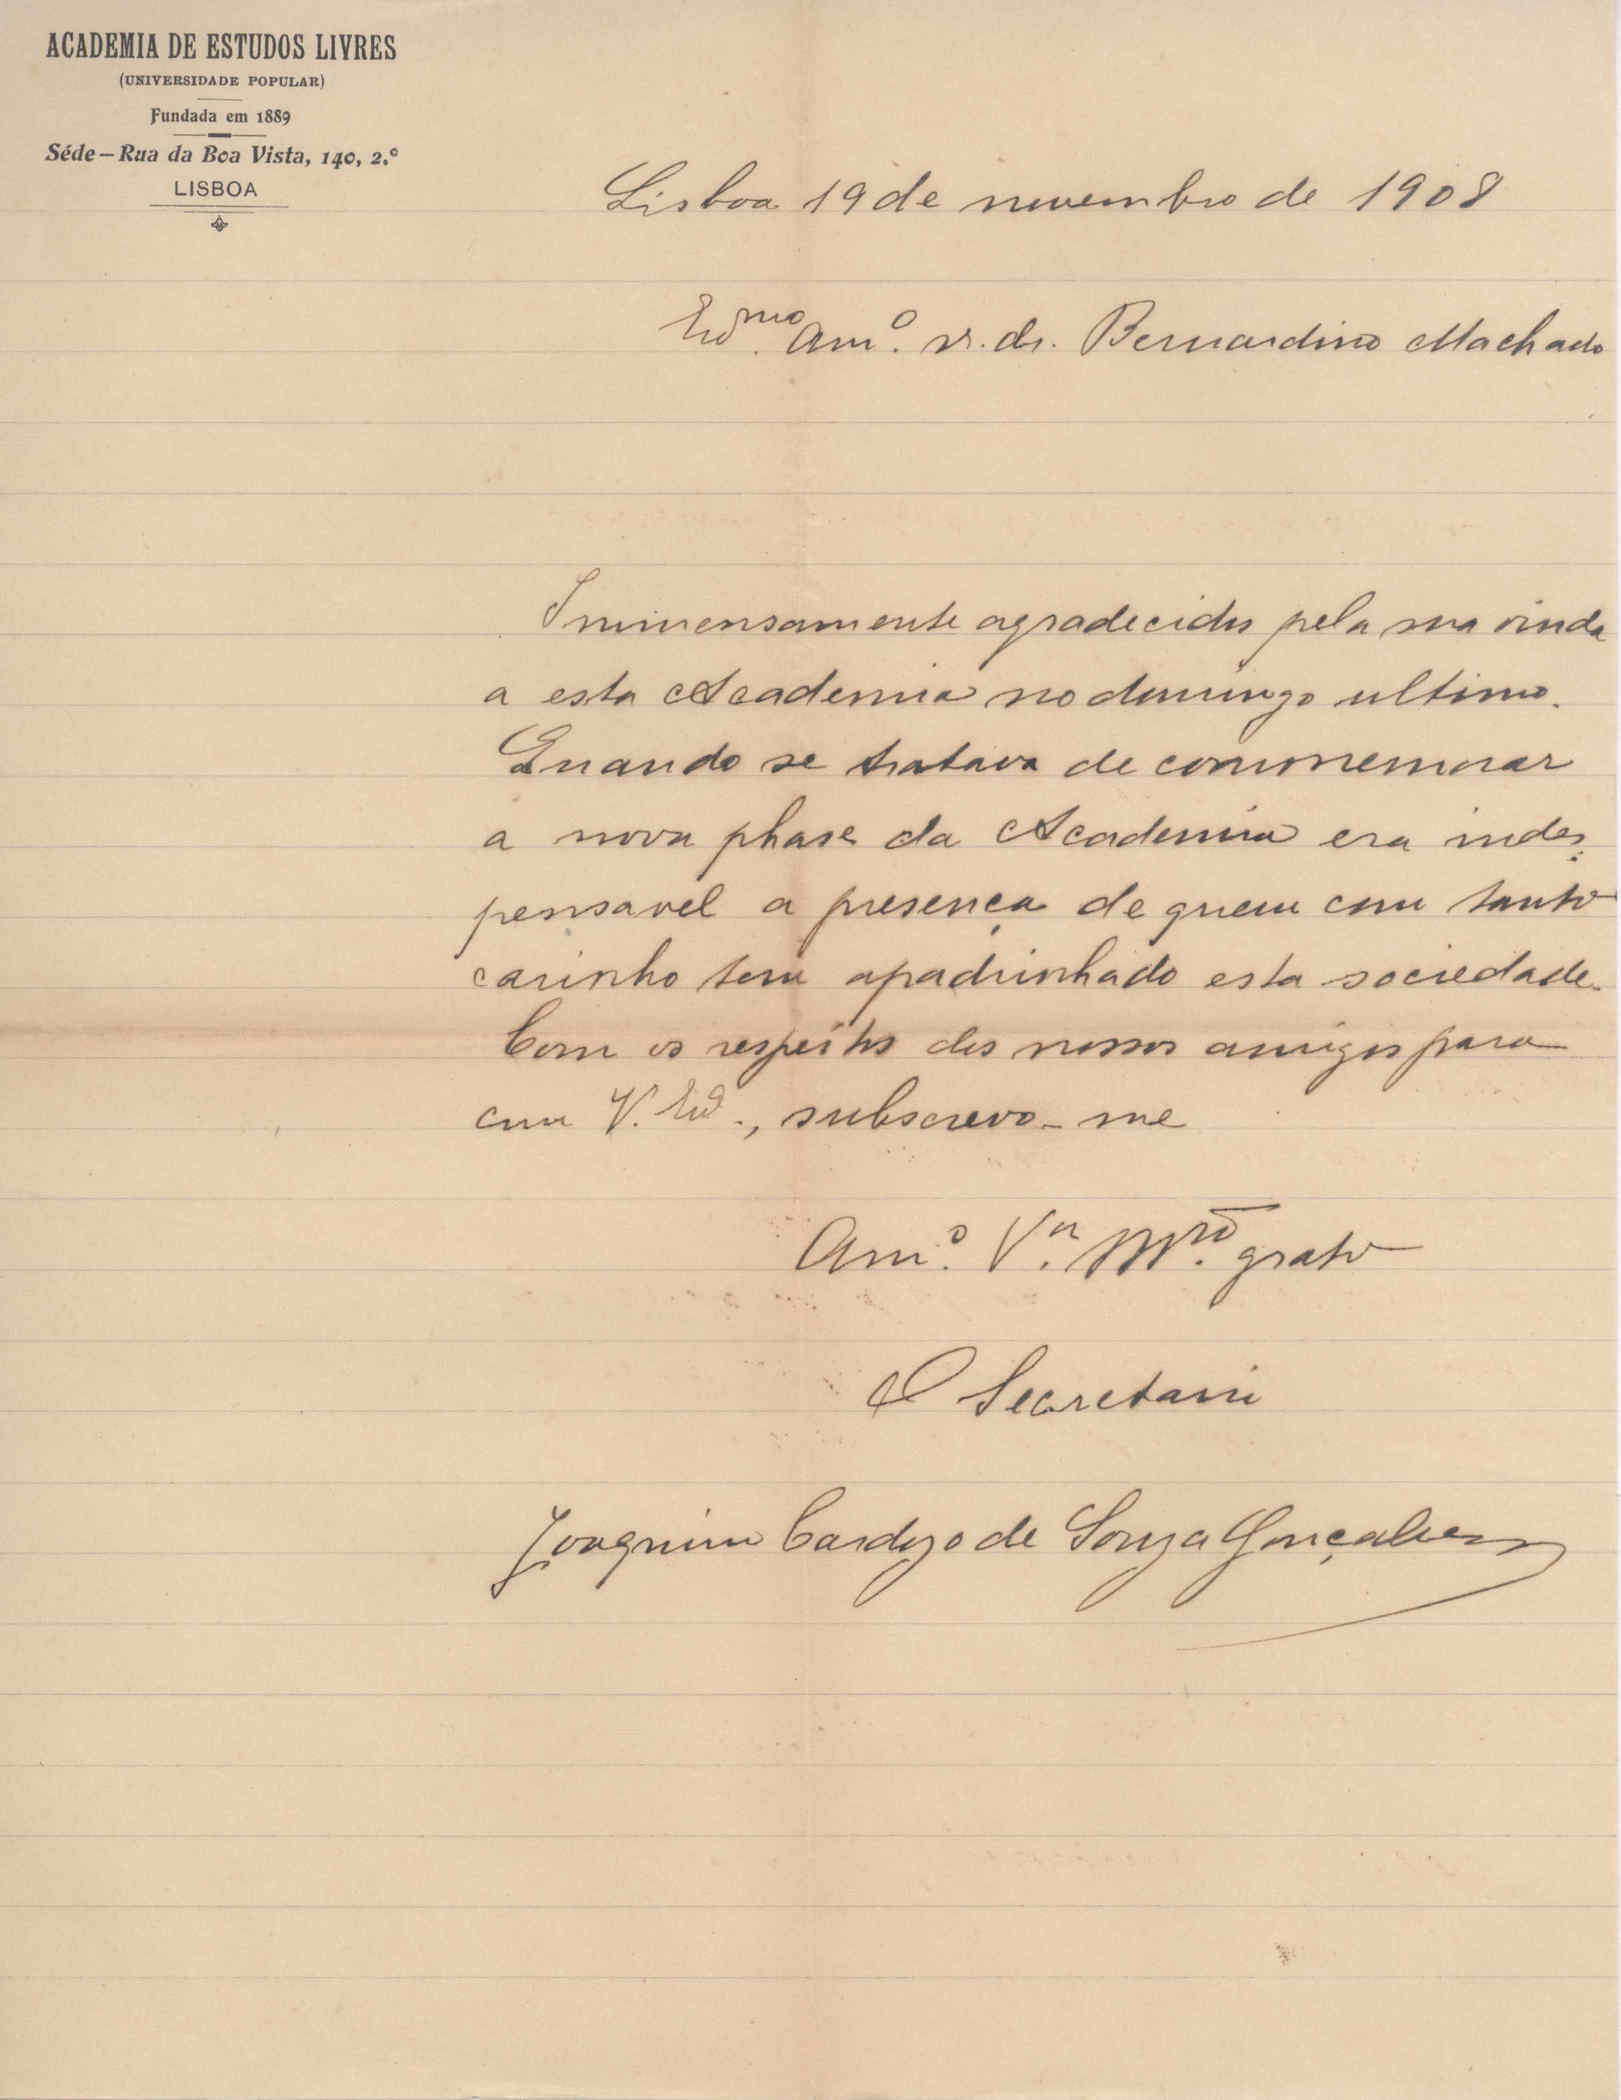 ACADEMIA DE ESTUDOS LIVRES
(UNIVERSIDADE POPULAR)
Fundada em 1889
Séde—Rua da Boa Vista, 140, 2.º
LISBOA
Lisboa 19 de novembro de 1908
Exmo. Am.º sr. dr. Bernardino Machado
Immensamente agradecidos pela sua vinda
a esta Academia no domingo ultimo.
Quando se tratava de commemorar
a nova phase da Academia era indes-
pensavel a presença de quem com tanto
carinho tem apadrinhado esta sociedade.
Com os respeitos dos nossos amigos para
com V. Exª., subscrevo-me
Am.º V.or M.to grato
O Secretario
Joaquim Cardozo de Souza Gonçalves